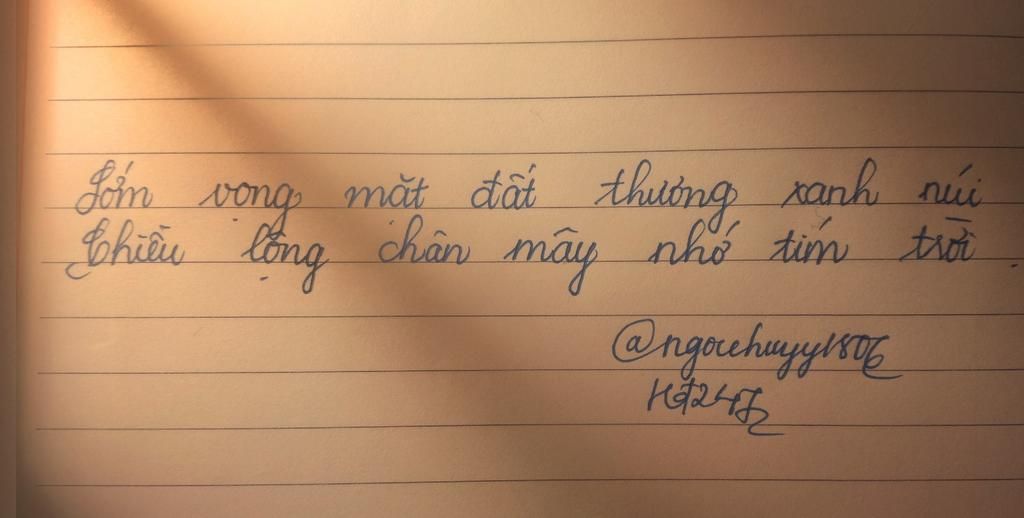 Sớm vọng mặt đất thương xanh núi
Chiều lộng chân mây nhớ tím trời.
@ngocchuyy1806